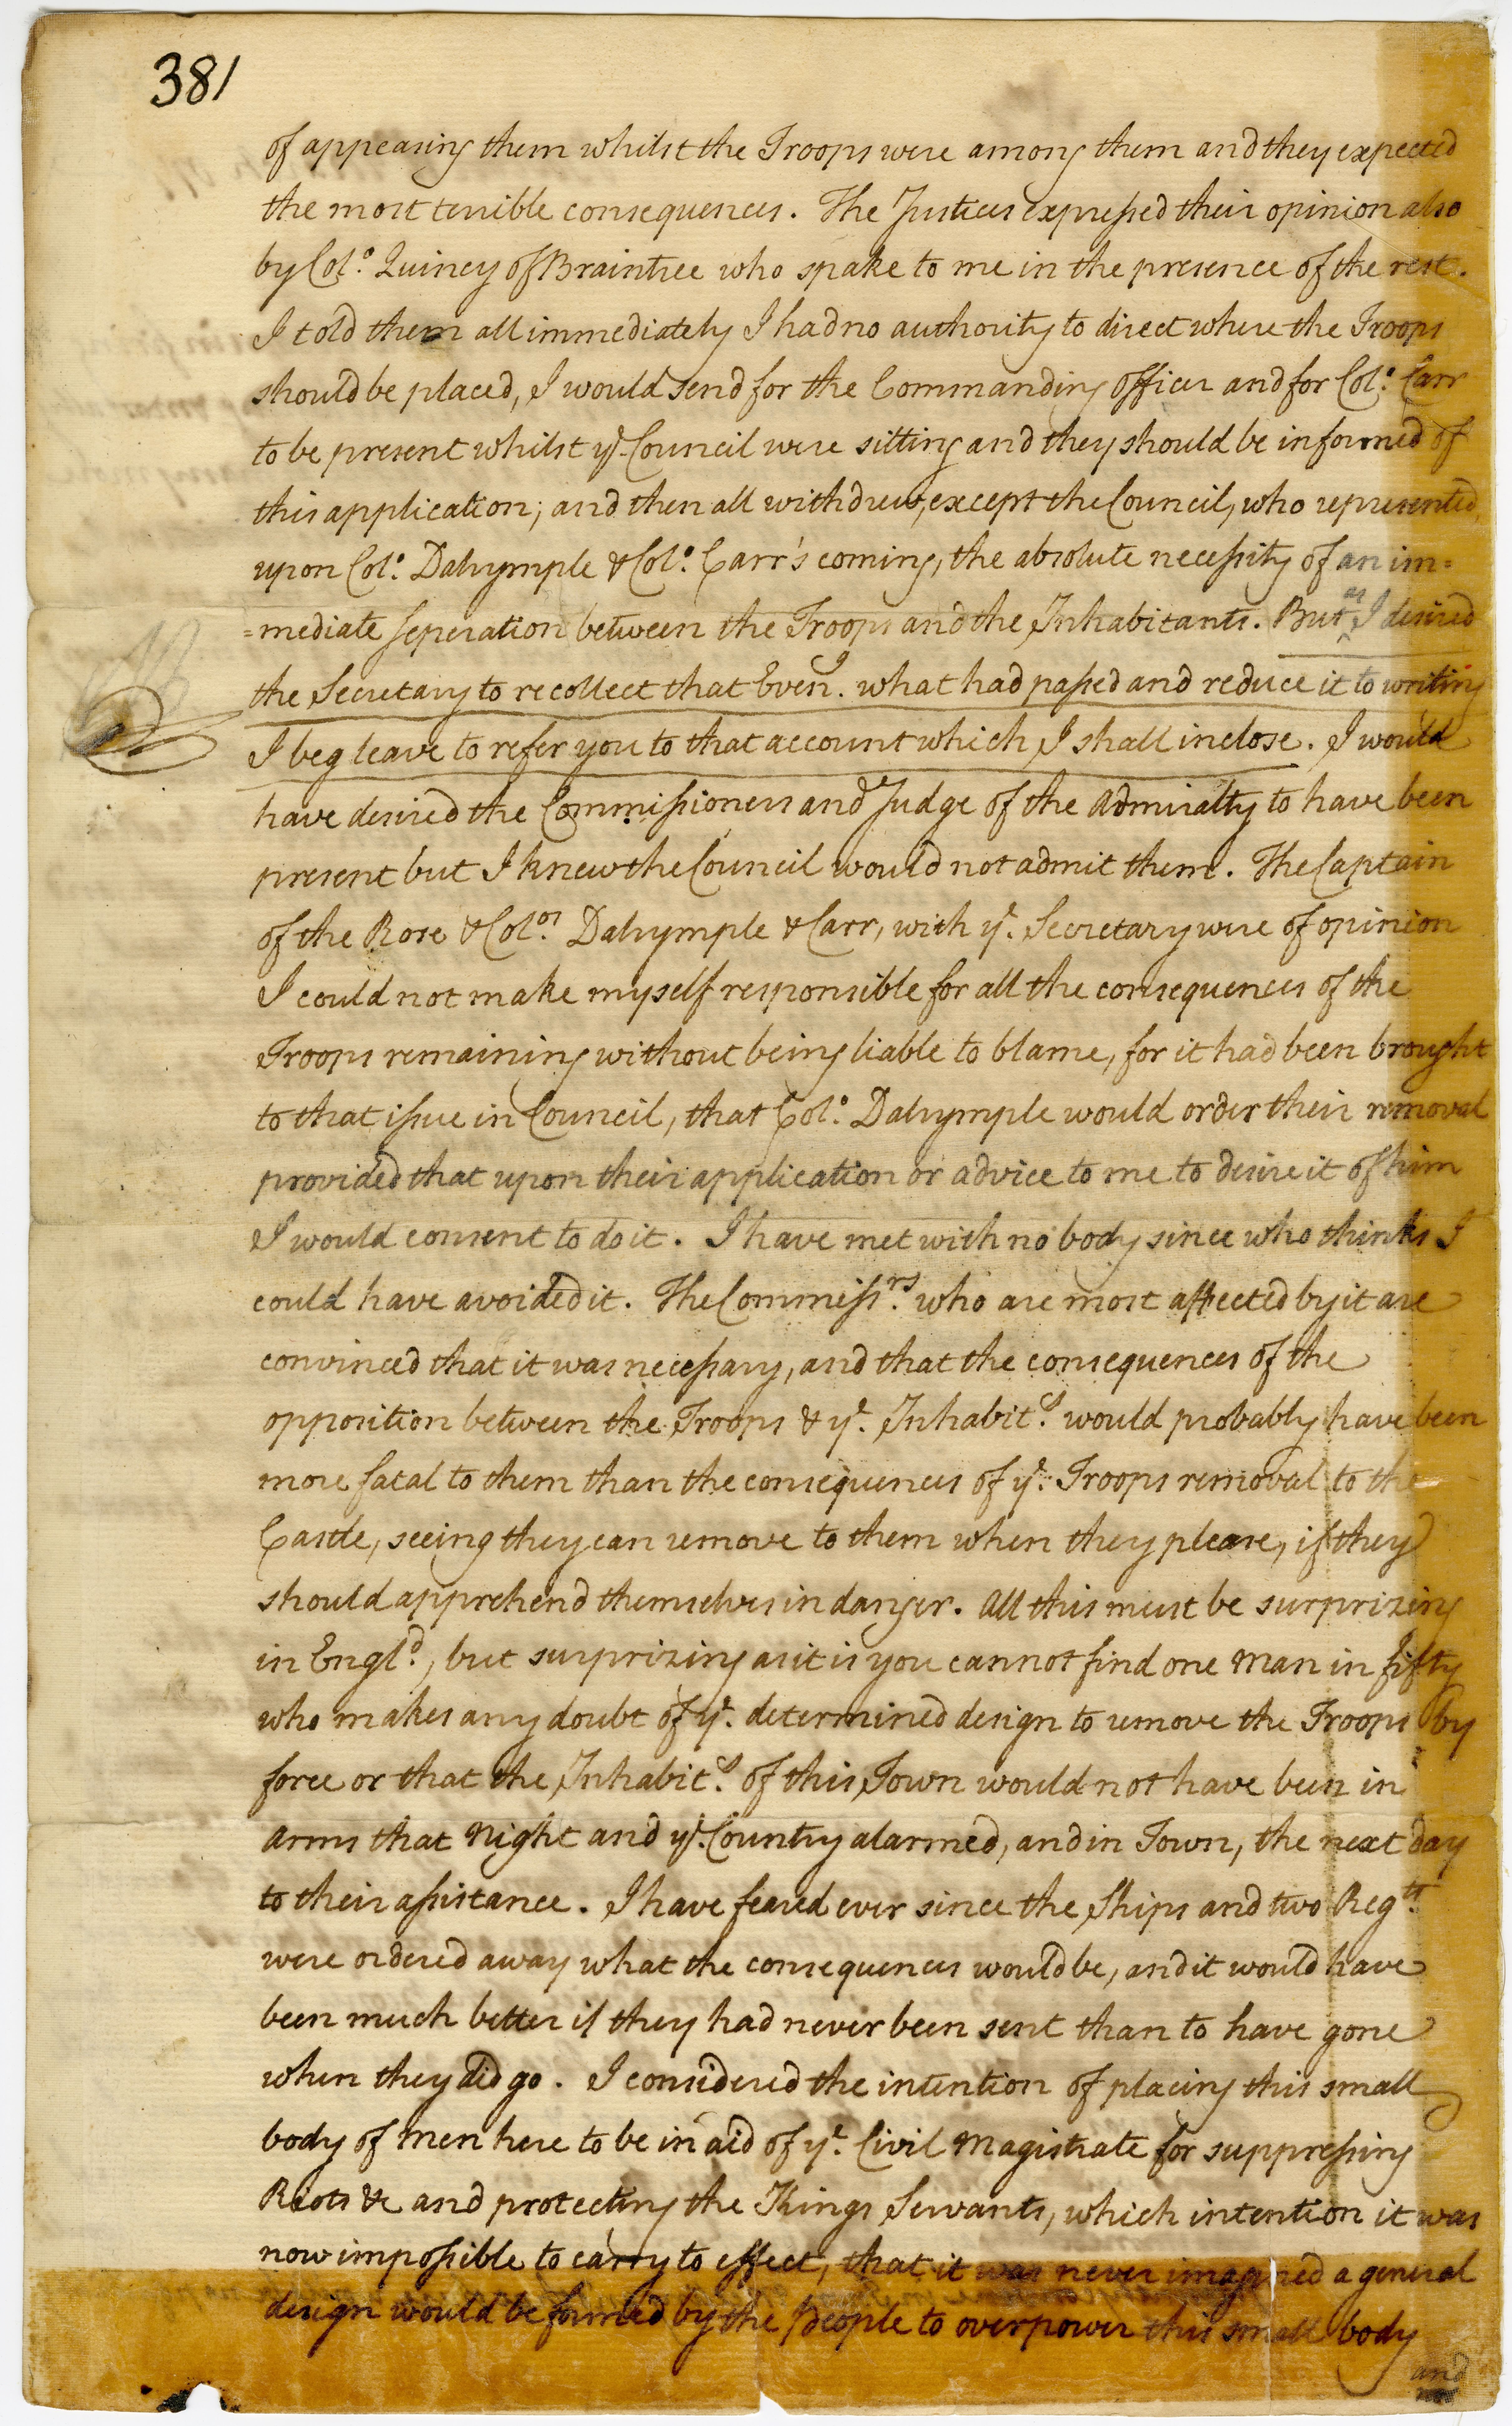 381
of appeasing them whilst the Troops were among them and they expected
the most terrible consequences. The Justices expressed their opinion also
by Col.o Quincy of Braintree who spake to me in the presence of the rest.
I told them all immediately I had no authority to direct where the Troops
should be placed, I would send for the Commanding officer and for Col.o Carr
to be present whilst ye. Council were sitting and they should be informed of
this application; and then all withdrew, except the Council, who represented,
upon Col.o Dalrymple & Col.o Carr's coming, the absolute necessity of an im=
=mediate seperation between the Troops and the Inhabitants. But as I desired
the Secretary to recollect that Even.g what had passed and reduce it to writing
I beg leave to refer you to that account which I shall inclose. I would
have desired the Commissioners and Judge of the Admiralty to have been
present but I knew the Council would not admit them. The Captain
of the Rose & Col.os Dalrymple & Carr, with ye. Secretary were of opinion
I could not make myself responsible for all the consequences of the
Troops remaining without being liable to blame, for it had been brought
to that issue in Council, that Col.o Dalrymple would order their removal
provided that upon their application or advice to me to desire it of him
I would consent to do it. I have met with no body since who thinks I
could have avoided it. The Commiss.rs who are most affected by it are
convinced that it was necessary, and that the consequences of the
opposition between the Troops & ye. Inhabit.s would probably have been
more fatal to them than the consequences of ye. Troops removal to the
Castle, seeing they can remove to them when they please, if they
should apprehend themselves in danger. All this must be surprizing
in Engl.d, but surprizing as it is you cannot find one Man in fifty
who makes any doubt of ye. determined design to remove the Troops by
force or that the Inhabit.s of this Town would not have been in
arms that Night and ye. Country alarmed, and in Town, the next day
to their assistance. I have feared ever since the Ships and two Reg.ts
were ordered away what the consequences would be, and it would have
been much better if they had never been sent than to have gone
when they did go. I considered the intention of placing this small
body of Men here to be in aid of ye. Civil Magistrate for suppressing
Riots &c and protecting the Kings Servants, which intention it was
now impossible to carry to effect, that it was never imagined a general
design would be formed by the people to overpower this small body
and